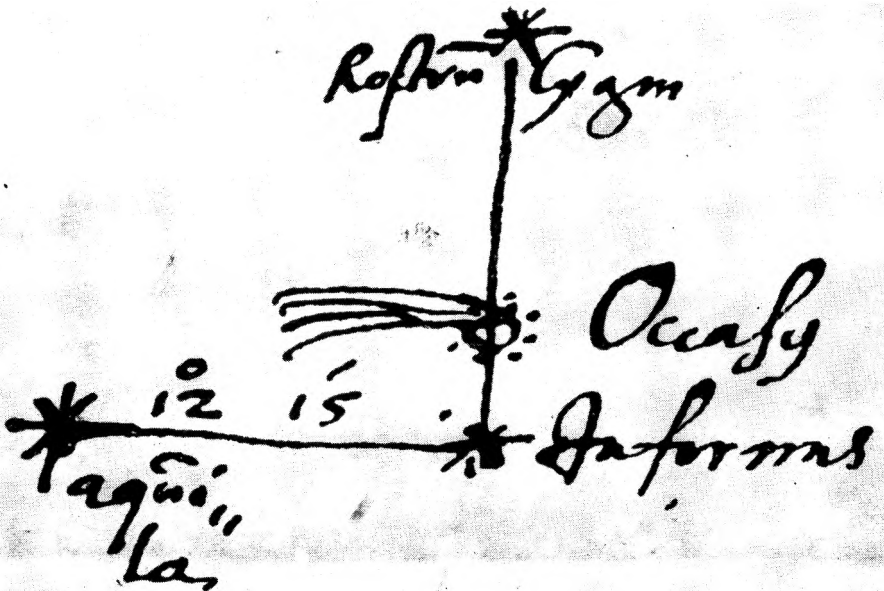 Rostrū Cygni
Occasq
12° 15′
Informis
aqũi„
la,